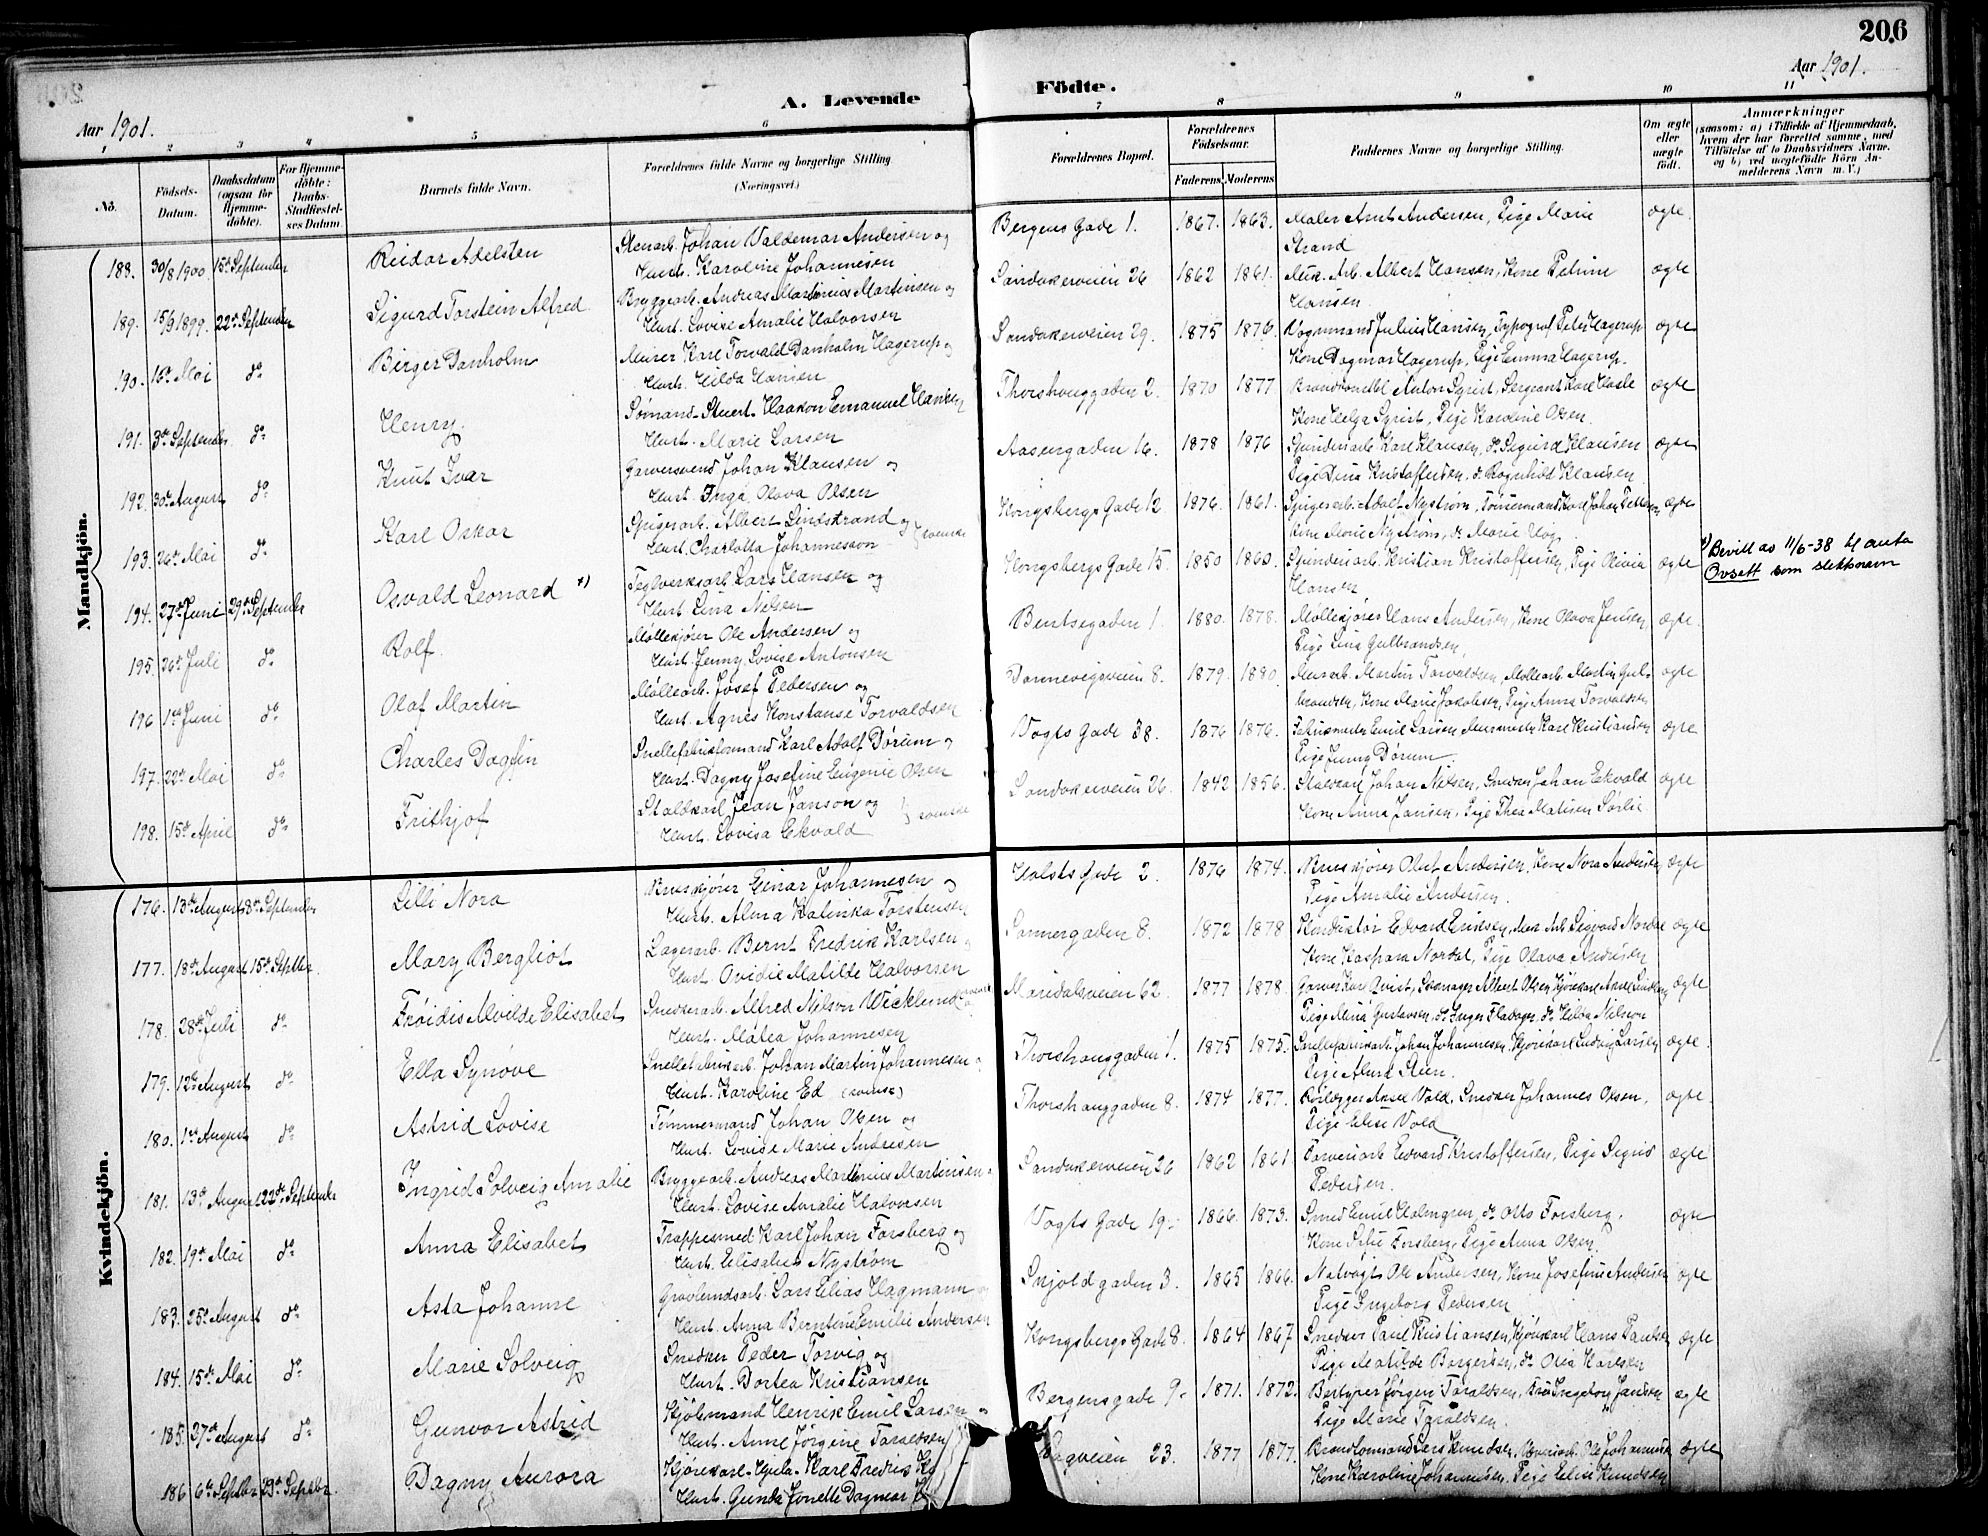 206
Aar 1901.
A. Levende
Fødte.
Aar 1901.
1 2 3 4 5 6 7 8 9 10 11
No.
Fødsels-Datum.
Daabsdatum (ogsaa for Hjemme-døbte).
For Hjemme-døbte: Daabs-Stadfæstel-ses Datum.
Barnets fulde Navn.
Forældrenes fulde Navne og borgerlige Stilling
(Næringsvei.)
Forældrenes Bopæl.
Forældrenes Fødselsaar.
Faderens Moderens
Faddernes Navne og borgerlige Stilling.
Om ægte eller uægte født.
Anmærkninger
(saasom: a) i Tilfælde af Hjemmedaab, hvem der har forrettet samme, med Tilføielse af to Daabsvidners Navne, og b) ved uægtefødte Børn An-melderens Navn m. V.)
Mandkjøn.
188. 30/8 1900. 15de September Reidar Adelsten Stenarb. Johan Valdemar Andersen og
Hust. Karoline Johannesen
Bergens Gade 1. 1867. 1863. Maler Arnt Andersen, Pige Marie
Strand ægte.
189. 15/9 1899. 22de September Sigurd Torstein Alfred. Bryggearb. Andreas Martinius Martinsen og
Hust. Lovise Amalie Halvorsen
Sandakerveien 26 1862 1861. Mek. Arb. Albert Hansen, Kone Petrine
Hansen. ægte
190. 16de Mai do Birger Danholm Murer Karl Torvald Danholm Hagerup og
Hust. Hilda Hansen
Sandakerveien 29. 1875 1876. Vognmand Julius Hansen, Typograf Peter Hagerup
Kone Dagmar Hagerup, Pige Emma Hagerup. ægte
191. 3de September do Henry. Sømand-Stuert Haakon Emanuel Hansen
Hust. Marie Larsen
Thorshauggaden 2. 1870 1877 Anton Syrist, Sergeant Karl Hasle
Kone Helga Syrist, Pige Karoline Olsen. ægte
192. 30de August do Knut Ivar Garversvend Johan Klausen og
Hust. Inga Olava Olsen
Aasengaden 16. 1878 1876 Spinderiarb. Karl Klausen, do Sigurd Klausen
Pige Dina Kristoffersen, do Ragnhild Klausen ægte
193. 26de Mai do Karl Oskar Spigerarb. Albert Lindstrand og
Hust. Charlotta Johannesson } svenske
Kongsbergs Gade 12 1876. 1861. Spigerarb. Adolf Nystrøm, Tømmermand Karl Johan
Kone Marie Nystrøm, do Marie ægte
194. 27de Juni 29de September Osvald Leonard x) Teglverksarb. Lars Hansen og
Hust. Lina Nilsen
Kongsbergs Gade 15. 1850 1860. Spinderiarb. Kristian Kristoffersen, Pige Olivia
Hansen ægte
x) Bevill av 11/6-38 til anta
Ovsett som slektsnavn
195. 26de Juli do Rolf. Møllekjører Ole Andersen og
Hust. Jenny Lovise Antonsen
Bentsegaden 1. 1880. 1878. Møllekjører Hans Andersen, Kone Olava Jensen
Pige Lina Gulbrandsen, ægte.
196 1ste Juni do Olaf Martin Møllearb. Josef Pedersen og
Hust. Agnes Konstanse Torvaldsen
Dannevigsveien 8. 1879. 1880 Murarb. Martin Torvaldsen, Møllearb. Martin Gul-
brandsen, Kone Marie Jakobsen, Pige Anna Torvaldsen ægte
197. 22de Mai do Charles Dagfin Snellefabrikformand Karl Adolf Dørum og
Hust. Dagny Josefine Eugenie Olsen
Vogts Gade 38. 1876 1876. Emil Larsen, Murmester Karl Kristiansen
Pige Jenny Dørum. ægte
198. 15de April do Frithjof Staldkarl Jean Janson og
Hust. Lovisa Ekvald } svenske
Sandakerveien 26. 1842 1856. Staldkarl Johan Nilsen, Snedker Johan Eekvald
Kone Anna Jansen, Pige Thea Matisen Sørlie ægte
Kvindekjøn.
176. 13de August 8de September Lilli Nora Bruskjører Einar Johannesen og
Hust. Alma Katinka Torstensen
Holsts Gade 2. 1876 1874. Bruskjører Olut Andersen, Kone Nora Andersen
Pige Amalie Andersen. ægte
177. 18de August 15de Septbr. Mary Bergliot Lagerarb. Bernt Fredrik Karlsen og
Hust. Ovidie Matilde Halvorsen
Sannergaden 8. 1872 1878 Konduktør Edvard Eriksen, Mek. Arb. Sigvard Nordal
Kone Kaspara Nordal, Pige Olava Andresen ægte
178. 28de Juli do Frøidis Alvilde Elisabet Snedkerarb. Alfred Nilson Wicklund
Hust. Matea Johannesen
Maridalsveien 62. 1877 1878. Garver Karl Qvist, Albert Olsen,
Pige Mina Gustavsen, do Inger Fladager, do Hilda Nilsson ægte
179. 12te August do Ella Synøve Snellefabrikarb. Johan Martin Johannesen og
Hust. Karoline Ed (svensk)
Thorshauggaden 1. 1875 1875. Snellefabrikarb. Johan Johannesen, Kjørekarl Ludvig Larsen
Pige Alma Steen. ægte.
180. 1ste August do Astrid Lovise Tømmermand Johan Olsen og
Hust. Lovise Marie Andresen
Thorshauggaden 8. 1874 1877. Rørlægger Aksel Vold, Snedker Johannes Olsen,
Pige Elise Vold ægte.
181. 13de August 22de September Ingrid Solveig Amalie Bryggearb. Andreas Martinius Martinsen
Hust. Lovise Amalie Halvorsen
Sandakerveien 26 1862 1861 Farveriarb. Edvard Kristoffersen, Pige Signe
Pedersen. ægte
182. 19de Mai do Anna Elisabet Trappesmed Karl Johan Forsberg og
Hust. Elisabet Nystrøm
Vogts Gade 19. 1866. 1873. Smed Emil Holmgren, do Otto Forsberg,
Kone Forsberg, Pige Anna Olsen. ægte
183. 25de August do Asta Johanne Lars Elias Hagmann og
Hust. Anna Berntine Emilie Andersen
Skjoldgaden 3. 1865 1866. Natvagt Ole Andersen, Kone Josefine Andersen
Pige Ingeborg Pedersen ægte
184. 15de Mai do Marie Solveig Snedker Peder Torvig og
Hust. Dortea Kristiansen
Kongsbergs Gade 8. 1864 1867 Snedker Paul Kristiansen, Kjørekarl Hans Paulsen
Pige Matilde Borgersen, do Olia Karlsen ægte
185. 27de August do Gunvor Astrid Kjølemand Henrik Emil Larsen og
Hust. Anne Jørgine Taraldsen
Bergensgade 9. 1871. 1872. Jørgen Taraldsen, Frk. Ingeborg Jansen
Pige Marie Taraldsen. ægte
186 6te Septbr 29de Septbr. Dagny Aurora Kjørekarl Karl Fredrik
Hust. Gunda Jonette Dagmar
23. 1877 1877. Lars Knudsen, Ole Johannesen
Kone Karoline Johannesen, Pige Elise Knudsen ægte